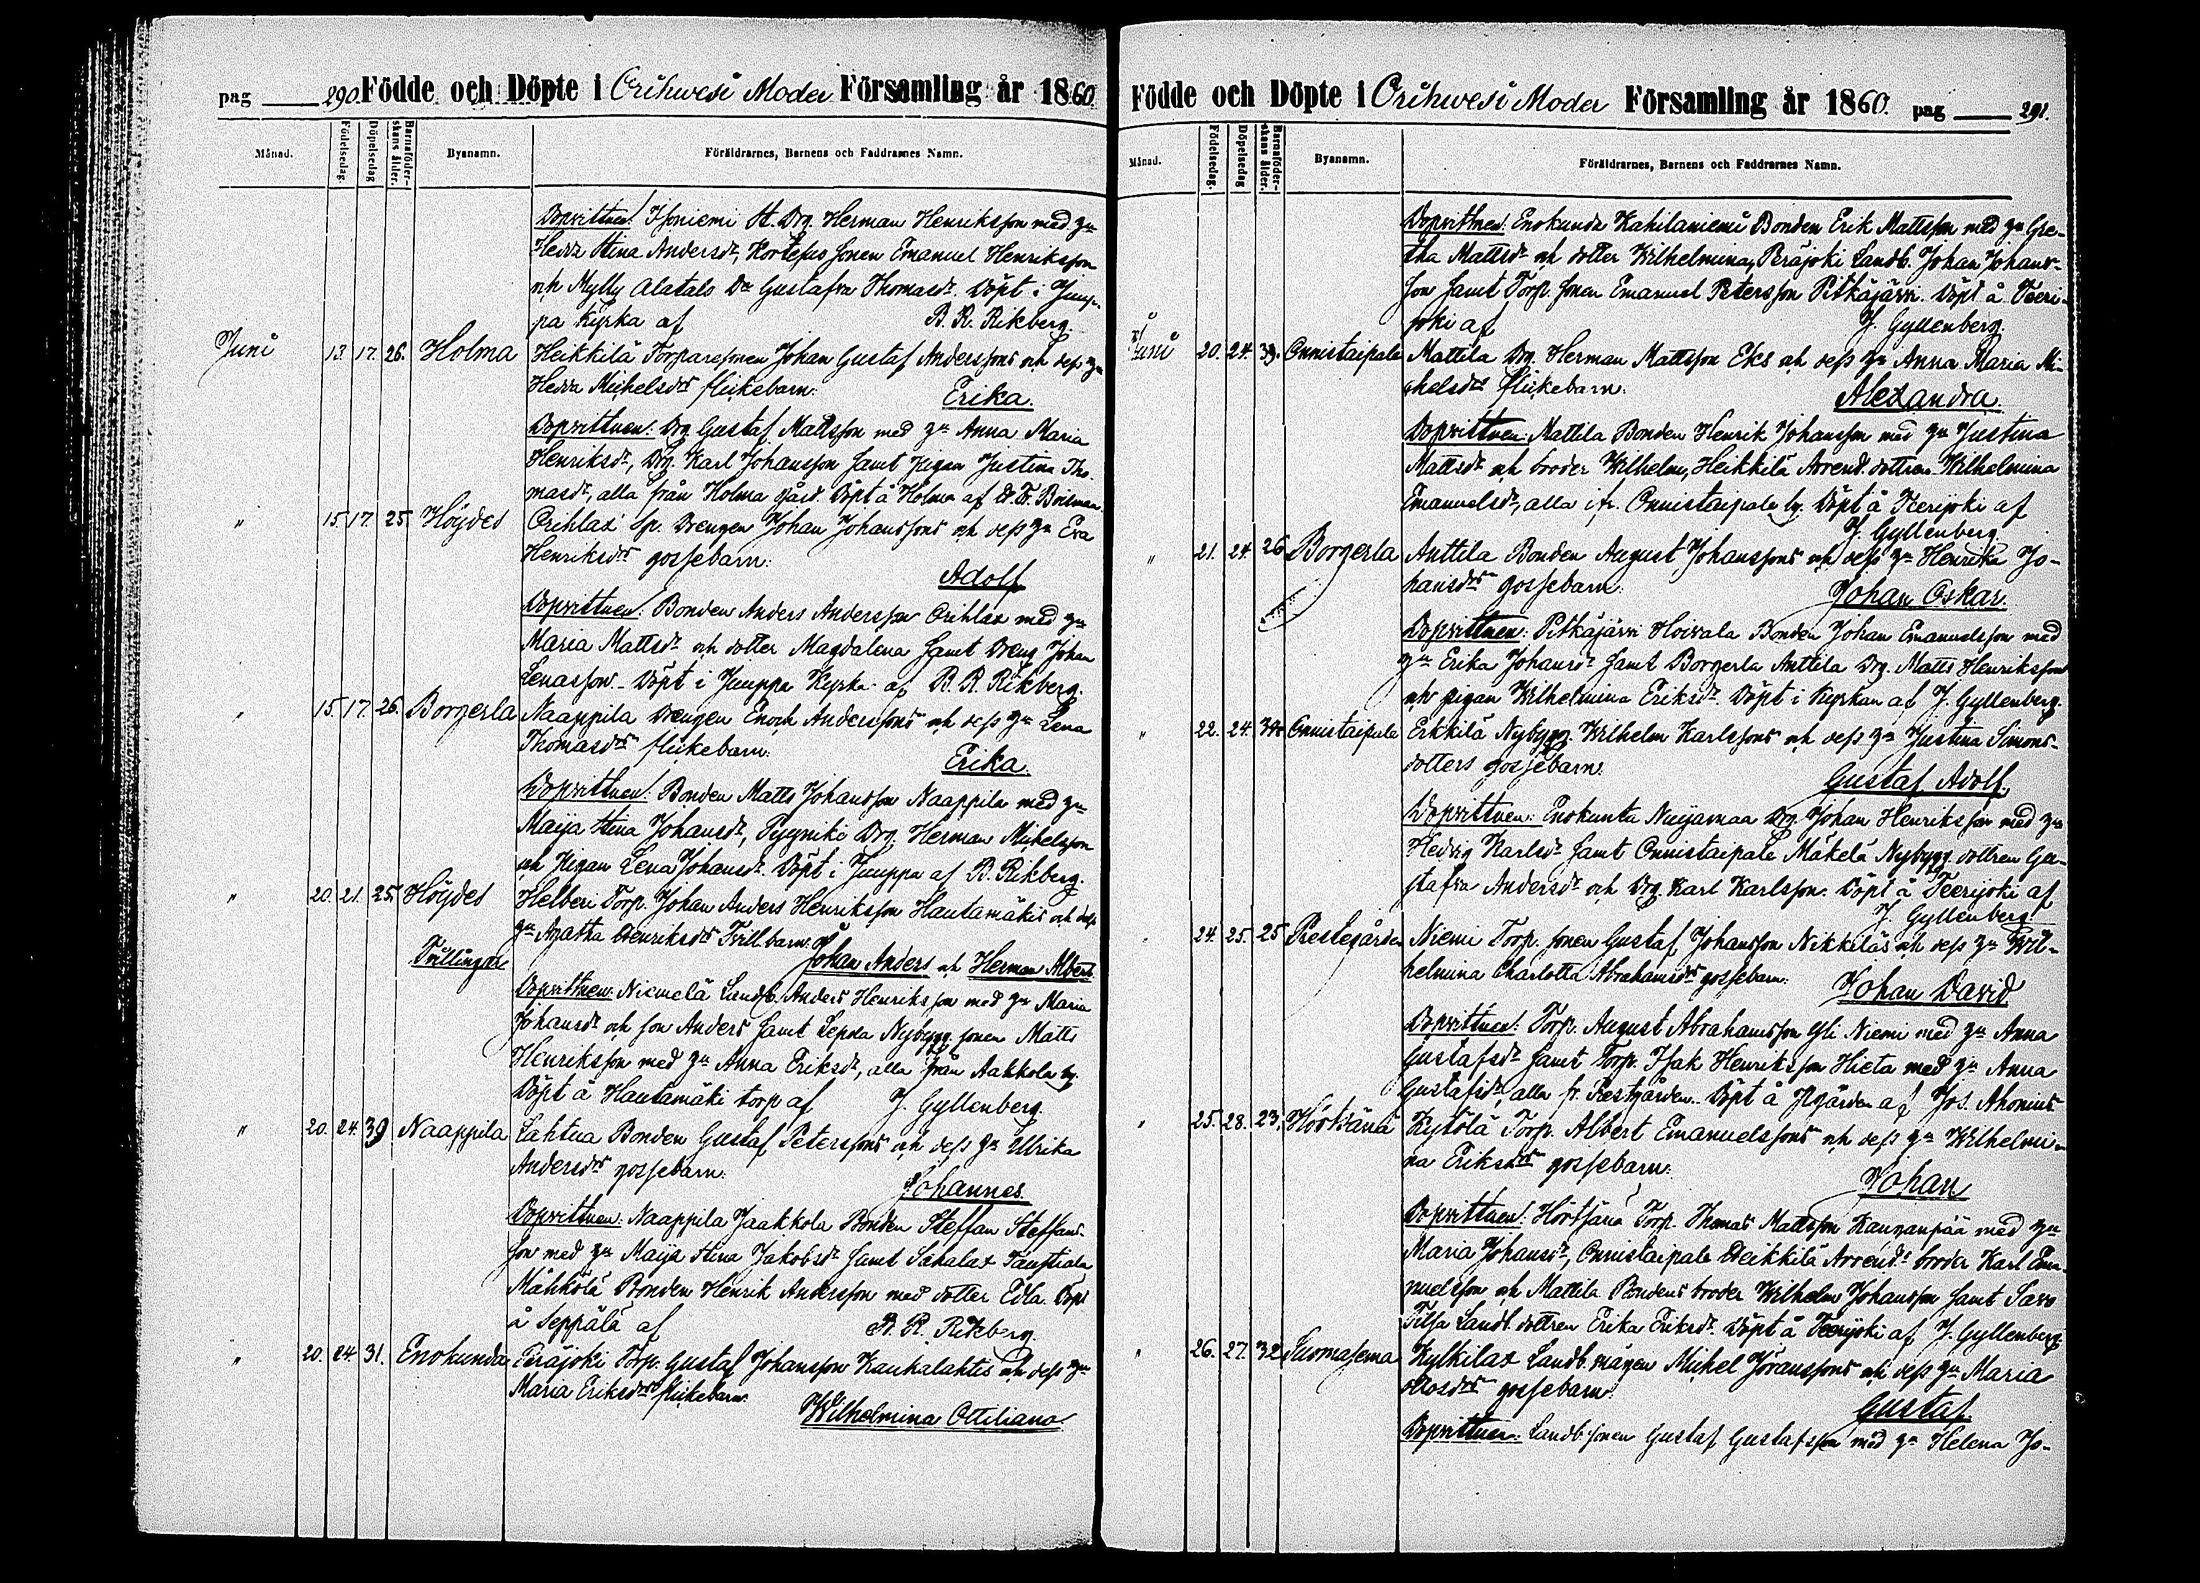 pag 290. Födde och Döpte i Orihwesi Moder Församling år 1860
Månad. Födelsedag. Döpelsedag Barnaföder-skans ålder. Bysnamn. Föräldrarnes, Barnens och Faddrarnes Namn.
Dopvittnen: Isoniemi St. Drg. Herman Henriksson med hu
Hedda Stina Andersdr, Kortesus sonen Emanuel Henriksson
och Mylly Alatalo Dr Gustafva Thomasdr. Döpt i Juup-
pa Kyrka af B. R. Rikberg.
Juni 13. 17. 26. Holma Heikkilä Torparesonen Johan Gustaf Anderssons och dess hu
Hedda Michelsdrs flickebarn: Erika.
Dopvittnen: Drg Gustaf Mattsson med hu Anna Maria
Henriksdr, Drg. Karl Johansson samt pigan Justina Tho-
masdr, alla från Holma gård. Döpt å Holma af
" 15. 17. 25. Höydes Orihlax Sp. Drengen Johan Johanssons och dess hu Eva
Henriksdrs gossebarn: Adolf
Dopvittnen: Bonden Anders Andersson Orihlax med hu
Maria Mattsdr och dotter Magdalena samt Dreng Johan
Lenasson. Döpt i Juuppa Kyrka af B. R. Rikberg.
" 15. 17. 26. Borgerla Naappila Drengen Enoch Anderssons och dess hu Lena
Thomasdrs flickebarn: Erika.
Dopvittnen: Bonden Matts Johansson Naappila med hu
Maija Stina Johansdr, Pyynikö Drg. Herman Michelsson
och Pigan Lena Johansdr. Döpt i Juuppa af B. Rikberg.
" 20. 21. 25. Höydes Helberi Torp. Johan Anders Henriksson Hautamäkis och dess
Tvillingar hu Agatha Henriksdrs Tvill. barn: Johan Anders och Herman Albert.
Dopvittnen: Niemelä Landb. Anders Henriksson med hu Maria
Johansdr och son Anders samt Seppä Nybygg. sonen Matts
Henriksson med hu Anna Eriksdr, alla från Aakkola by.
Döpt å Hautamäki torp af J. Gyllenberg.
" 20. 24. 39 Naappila Lahtua Bonden Gustaf Peterssons och dess hu Ulrika
Andersdrs gossebarn: Johannes
Dopvittnen: Naappila Jaakkola Bonden Steffan Steffans-
son med hu Maija Stina Jakobsdr samt Sahalax
Mähkölä Bonden Henrik Andersson med dotter Edla. Döpt
å Seppälä af B. R. Rikberg.
" 20. 24. 31. Enokunda Peräjoki Torp. Gustaf Johansson Kauhalahtis och dess hu
Maria Eriksdrs flickebarn:
Wilhelmina Ottiliana.
Födde och Döpte i Orihwesi Moder Församling år 1860. pag 291.
Månad. Födelsedag. Döpelsedag Barnaföder-skans ålder. Bysnamn. Föräldrarnes, Barnens och Faddrarnes Namn.
Dopvittnen: Enokunda Kahilaniemi Bonden Erik Mattsson med hu Gre-
tha Mattsdr och dotter Wilhelmina, Peräjoki Landb. Johan Johans-
son samt Torp. sonen Emanuel Petersson Pitkäjärvi. Döpt å Teeri-
joki af J. Gyllenberg.
Juni 20. 24. 39. Onnistaipale Mattila Drg. Herman Mattsson Eks och dess hu Anna Maria Mi-
chelsdrs flickebarn: Alexandra.
Dopvittnen: Mattila Bonden Henrik Johansson med hu Justina
Mattsdr och broder Wilhelm, Heikkilä Arrend. dottren Wilhelmina
Emanuelsdr, alla ifr. Onnistaipale by. Döpt å Teerijoki af
J. Gyllenberg.
" 21. 24. 26 Borgerla Anttila Bonden August Johanssons och dess hu Henrika Jo-
hansdrs gossebarn: Johan Oskar.
Dopvittnen: Pitkäjärvi Hoivala Bonden Johan Emanuelsson med
hu Erika Johansdr samt Borgerla Anttila Drg. Matts Henriksson
och pigan Wilhelmina Eriksdr. Döpt i Kyrkan af J. Gyllenberg.
" 22. 24. Onnistaipale Erkkilä Nybygg. Wilhelm Karlssons och dess hu Justina Simons-
dotters gossebarn: Gustaf Adolf.
Dopvittnen: Enokunta Neijamaa Drg. Johan Henriksson med hu
Hedvig Karlsdr samt Onnistaipale Mäkelä Nybygg. dottren Gu-
stafva Andersdr och Drg. Karl Karlsson. Döpt å Teerijoki af
J. Gyllenberg.
24. 25. 25 Prestegården Niemi Torp. sonen Gustaf Johansson Nikkiläs och dess hu Wil-
helmina Charlotta Abrahamsdrs gossebarn: Johan David
Dopvittnen: Torp. August Abrahamsson Yli Niemi med hu Anna
Gustafsdr samt Torp. Isak Henriksson Hieta med hu Anna
Gustafsdr, alla fr. Prestgården. Döpt å Pgården af Jos. Ahonius
" 25. 28. 23. Hörtsänä Kytölä Torp. Albert Emanuelssons och dess hu Wilhelmi-
na Eriksdrs gossebarn: Johan
Dopvittnen: Hörtsänä Torp. Thomas Mattsson Kangaspää med hu
Maria Johansdr, Onnistaipale Heikkilä Arrend:s broder Karl Ema-
nuelsson och Mattila Bondens broder Wilhelm Johansson samt Savo
Landb. dottren Erika Eriksdr. Döpt å Teerijoki af J. Gyllenberg
" 26. 27. 32 Suomasema Kylkilax Landb. mågen Michel Göranssons och dess hu Maria
Ottosdrs gossebarn: Gustaf.
Dopvittnen: Landb. sonen Gustaf Gustafsson med hu Helena Jo-